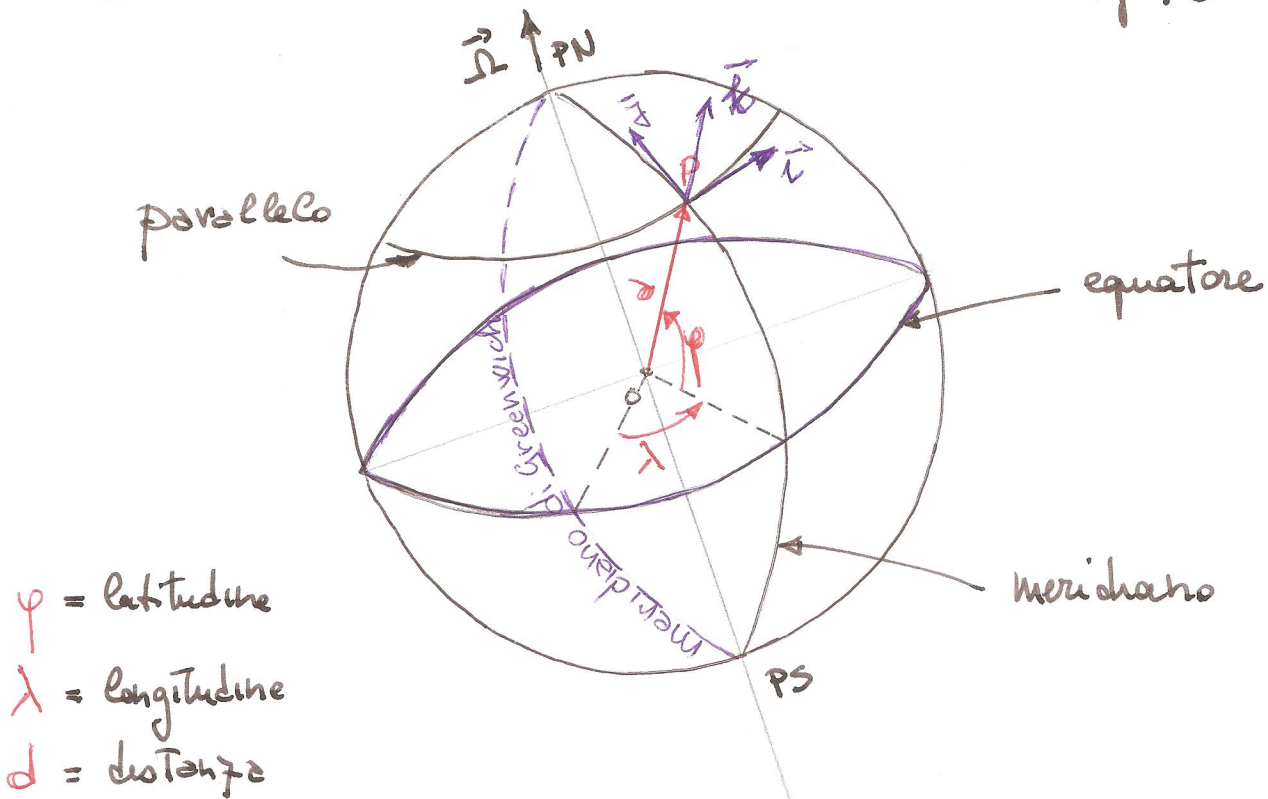 Ω PN
P
parallelo
equatore
d
φ
O
λ
meridiano di Greenwich
meridiano
PS
φ = latitudine
λ = longitudine
d = distanza